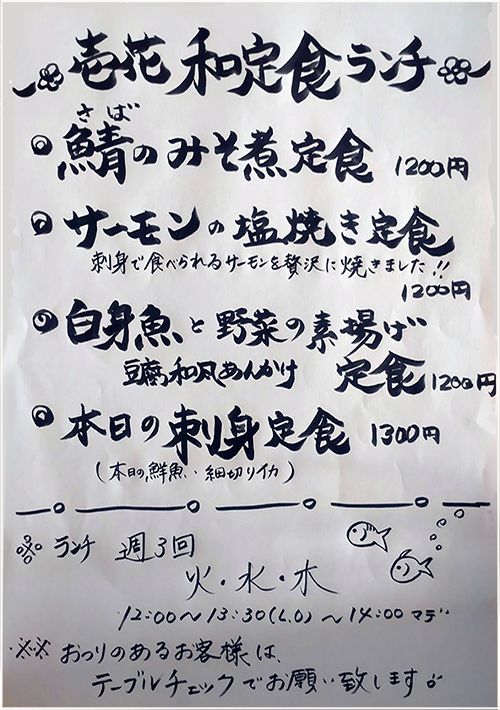 壱花 和定食ランチ
さば
鯖のみそ煮定食 1200円
サーモンの塩焼き定食
刺身で食べられるサーモンを贅沢に焼きました!!
1200円
白身魚と野菜の素揚げ
豆腐和風あんかけ 定食 1200円
本日の刺身定食 1300円
(本日の鮮魚・細切りイカ)
※ ランチ 週3回
火・水・木
12:00〜13:30(L.O)〜14:00マデ
※※ おつりのあるお客様は、
テーブルチェックでお願い致します。